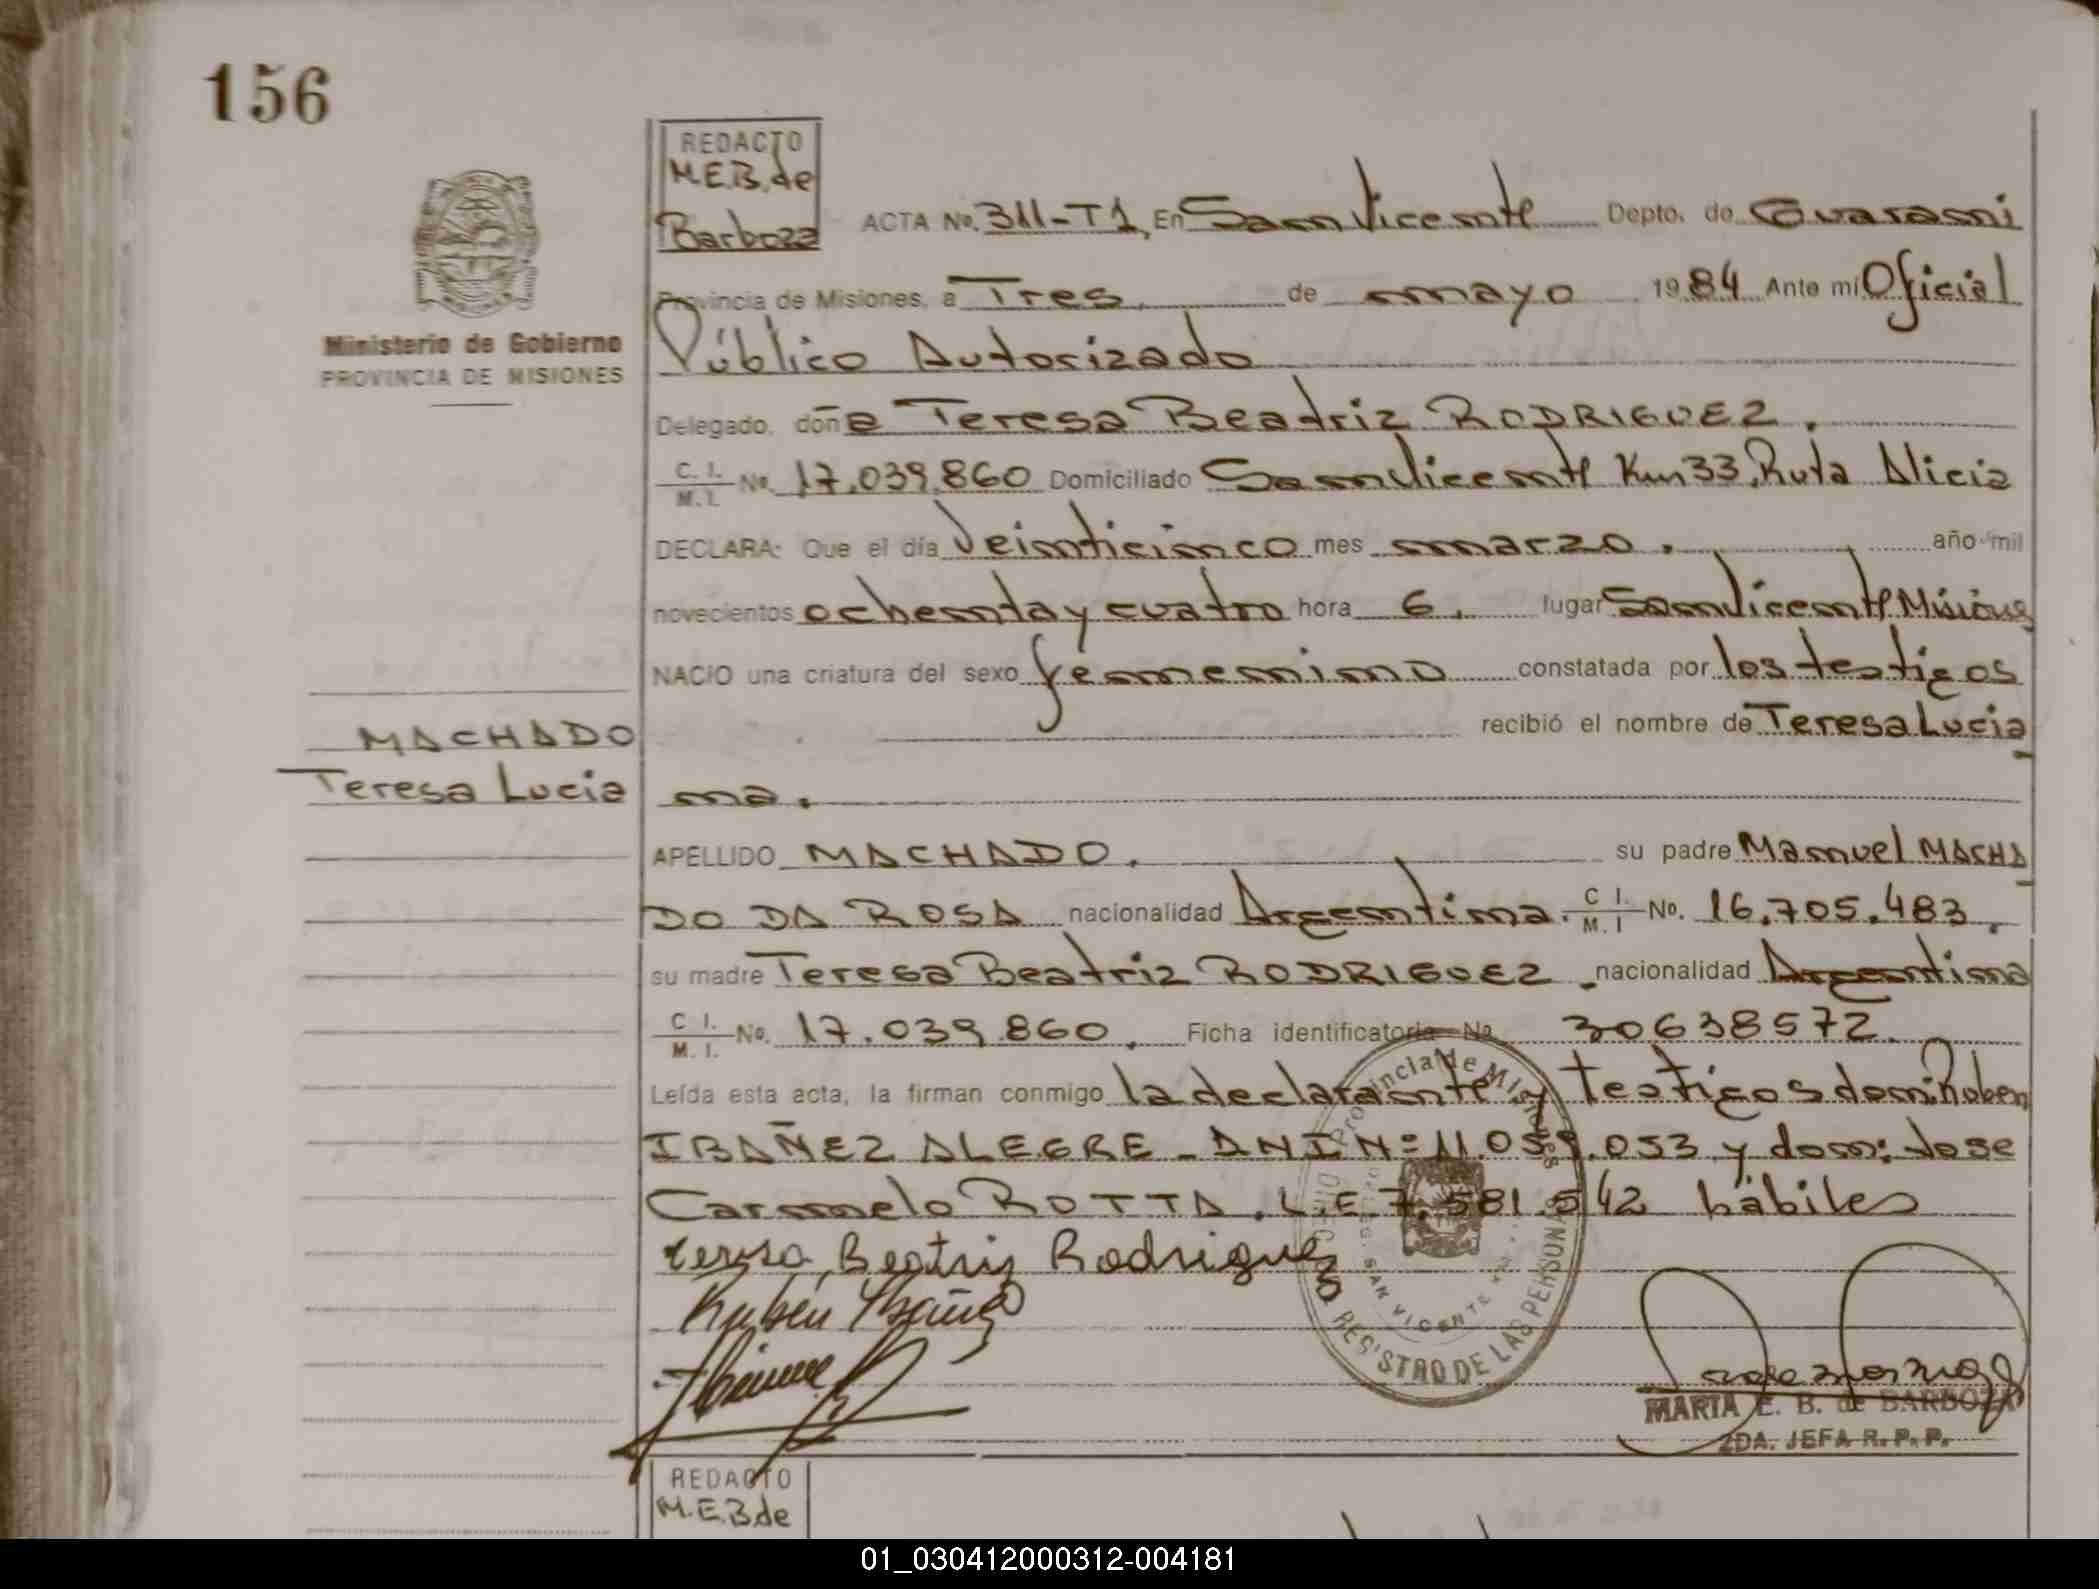 156
REDACTO
M.E.B. de
Barboza
ACTA No. 311-T1, En San Vicente Depto. de Guarani
Provincia de Misiones, a Tres de mayo 1984 Ante mi Oficial
Ministerio de Gobierno
PROVINCIA DE MISIONES
Público Autorizado
Delegado, doña Teresa Beatriz RODRIGUEZ.
C. I. M. I. No. 17.039.860 Domiciliado San Vicente Km 33, Ruta Alicia
DECLARA: Que el día Veinticinco mes marzo. año mil
novecientos ochenta y cuatro hora 6. lugar San Vicente Misiones
NACIO una criatura del sexo femenino constatada por los testigos
recibió el nombre de Teresa Lucia
MACHADO
Teresa Lucia
na.
APELLIDO MACHADO. su padre Manuel MACHA
DO DA ROSA nacionalidad Argentina. C I. M. I No. 16.705.483.
su madre Teresa Beatriz RODRIGUEZ. nacionalidad Argentina
C I. M. I. No. 17.039.860. Ficha identificatoria No 30638572.
Leída esta acta, la firman conmigo la declarante y testigos don: Ruben
IBAÑEZ ALEGRE - DNI Nº 11.059.053 y don: Jose
Carmelo ROTTA. L.E. 7.581.542 hábiles
teresa Beatriz Rodriguez
Rubén Ibañez
Provincia de Misiones
REGISTRO DE LAS PERSONAS
SAN VICENTE
MARIA E. B. de BARBOZA
2DA. JEFA R. P. P.
REDACTO
M.E.B de
01_030412000312-004181